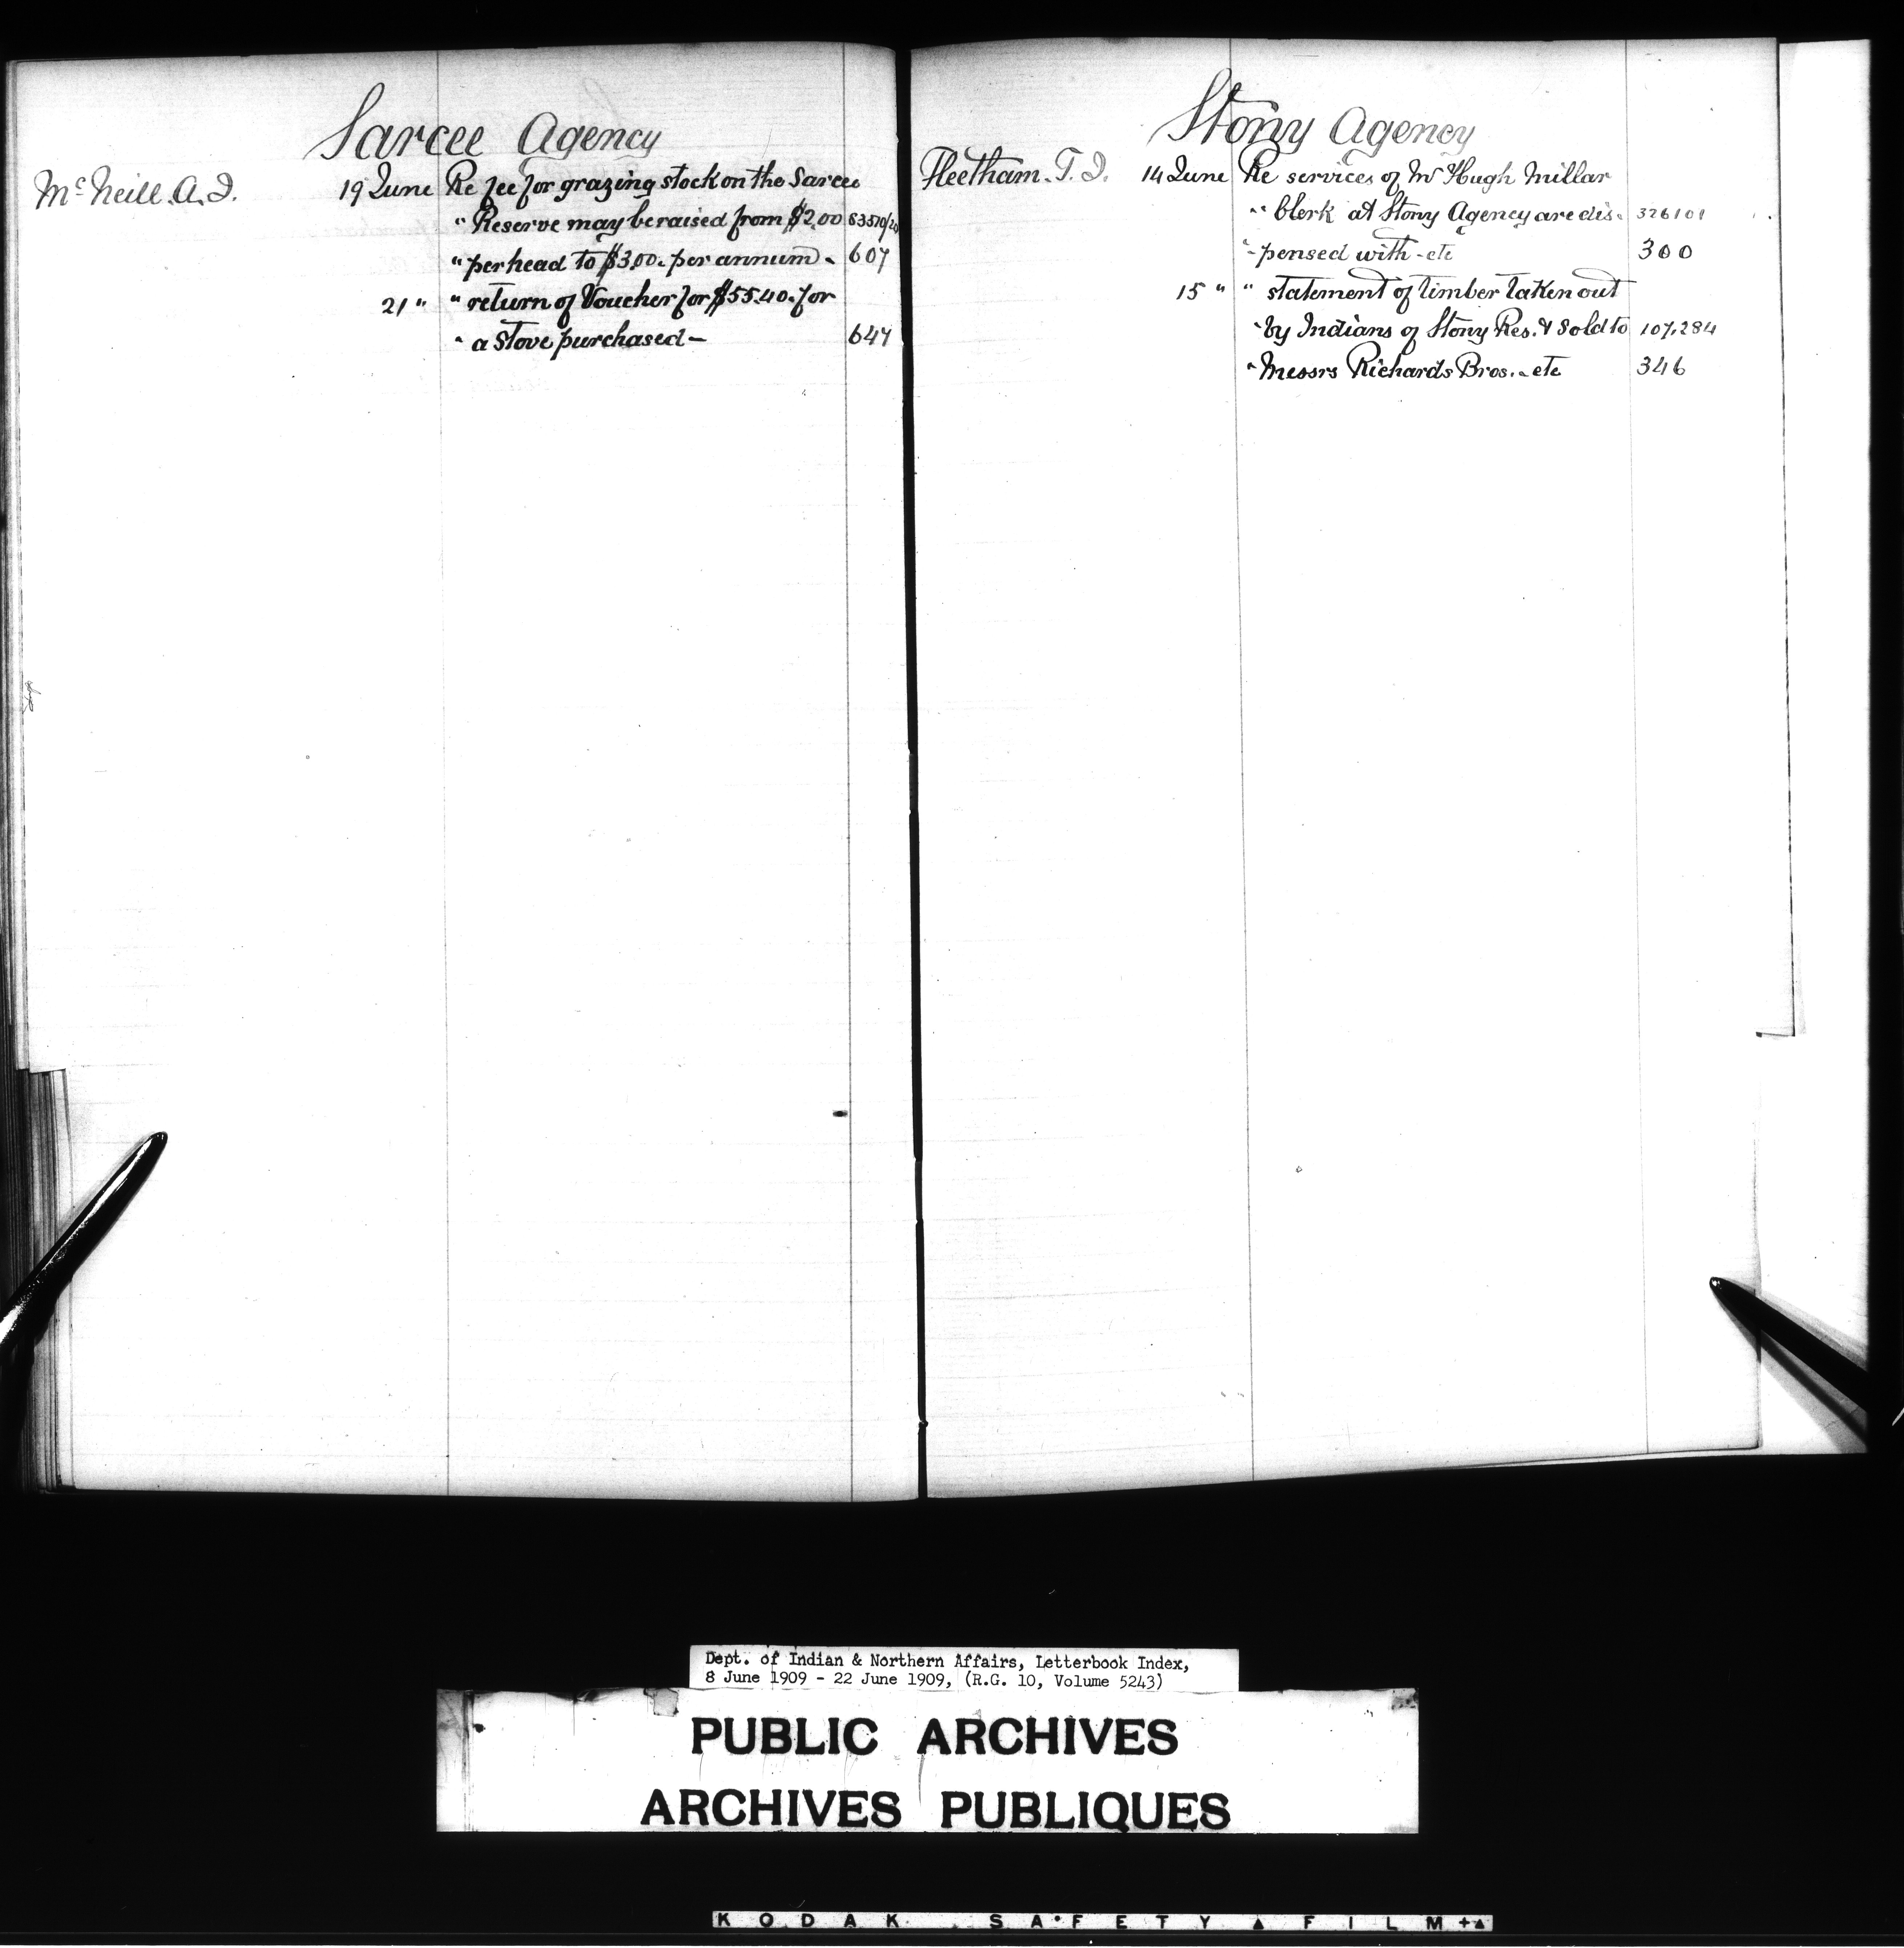 Sarcee Agency
McNeill. A. J. 19 June Re fee for grazing stock on the Sarcee
" Reserve may be raised from $2.00
" per head to $3.00. per annum - 607
21 " " return of Voucher for $55.40. for
" a stove purchased - 647
Stony Agency
Fleetham. T. J. 14 June Re services of Mr Hugh Millar
" Clerk at Stony Agency are dis- 326101
" pensed with - etc 300
15 " " statement of timber taken out
" by Indians of Stony Res. & sold to 107,284
" Messrs Richards Bros. - etc 346
Dept. of Indian & Northern Affairs, Letterbook Index,
8 June 1909 - 22 June 1909, (R.G. 10, Volume 5243)
PUBLIC ARCHIVES
ARCHIVES PUBLIQUES
KODAK SAFETY ▲ FILM +▲